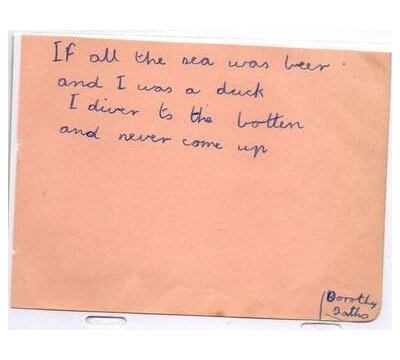 If all the sea was beer.
and I was a duck
I diver to the botten
and never come up
Dorothy
Baths